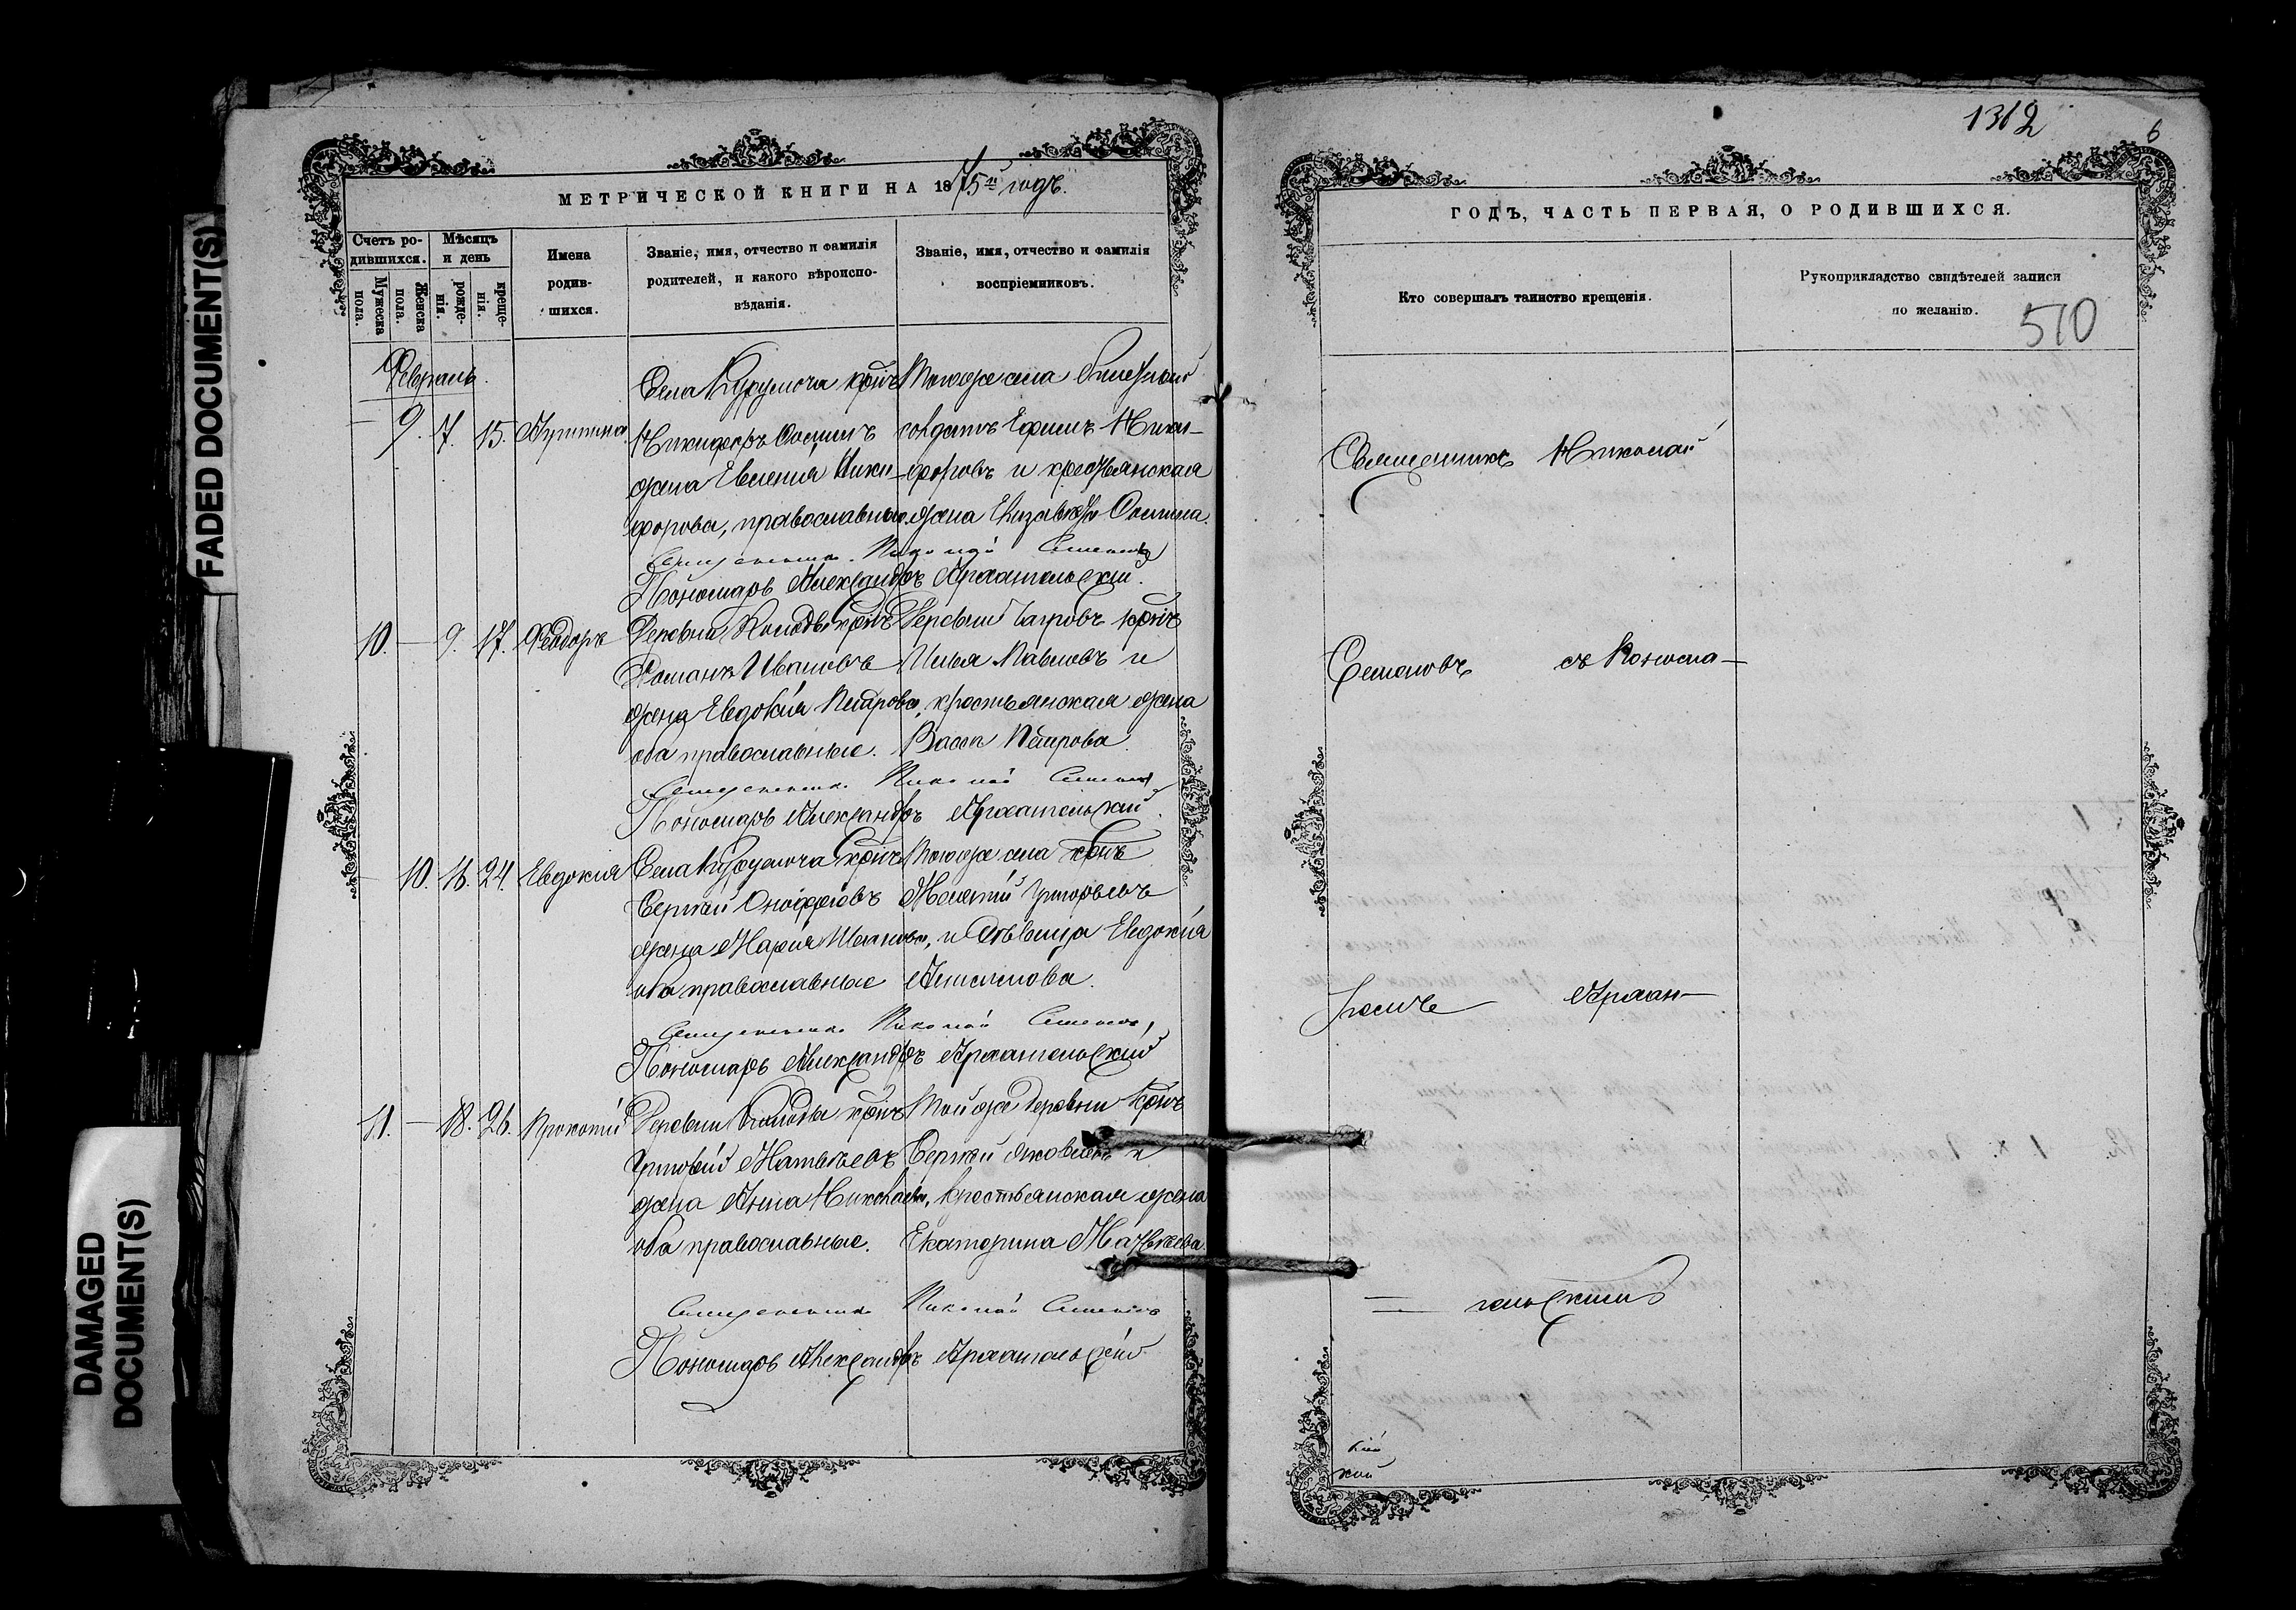 FADED DOCUMENT(S)
DAMAGED
DOCUMENT(S)
МЕТРИЧЕСКОЙ КНИГИ НА 1875й годъ.
Счетъ ро-
дившихся.
Мужеска пола.
Женска пола.
Мѣсяцъ
и день
рожде-
нія.
креще-
нія.
Имена
родив-
шихся.
Званіе, имя, отчество и фамилія
родителей, и какого вѣроиспо-
вѣданія.
Званіе, имя, отчество и фамилія
воспріемниковъ.
Февраль.
— 9. 7. 15.
Села крнъ
Никифоръ Осиповъ
жена Евгенія Ники-
форова, православные
Тогоже села
солдатъ Ефимъ Ники-
форовъ и крестьянская
жена Елизавета Осипова.
Священникъ Николай Семеновъ
Пономарь Александръ Архангельскій.
10. — 9. 17. Ѳеодоръ
Деревни крнъ
Романъ Ивановъ
жена Евдокія Петрова,
оба православные.
Деревни крнъ
Илья Павловъ и
крестьянская жена
Васса Петрова.
Священникъ Николай Семеновъ
Пономарь Александръ Архангельскій.
— 10. 16. 24. Евдокія
Села крнъ
Сергѣй
жена Марія Иванова,
оба православные
Тогоже села крнъ
Григорьевъ
и дѣвица Евдокія
Священникъ Николай Семеновъ
Пономарь Александръ Архангельскій
11. — 18. 26. Прокопій
Деревни крнъ
Григорій Матвѣевъ
жена Анна Николаева,
оба православные.
Той же деревни крнъ
Сергѣй Яковлевъ и
крестьянская жена
Екатерина Матвѣева.
Священникъ Николай Семеновъ
Пономарь Александръ Архангельскій
1312
6
ГОДЪ, ЧАСТЬ ПЕРВАЯ, О РОДИВШИХСЯ.
Кто совершалъ таинство крещенія.
Рукоприкладство свидѣтелей записи
по желанію.
510
Священникъ Николай
Семеновъ съ Понома-
ремъ Архан-
гельскимъ
кій
кій